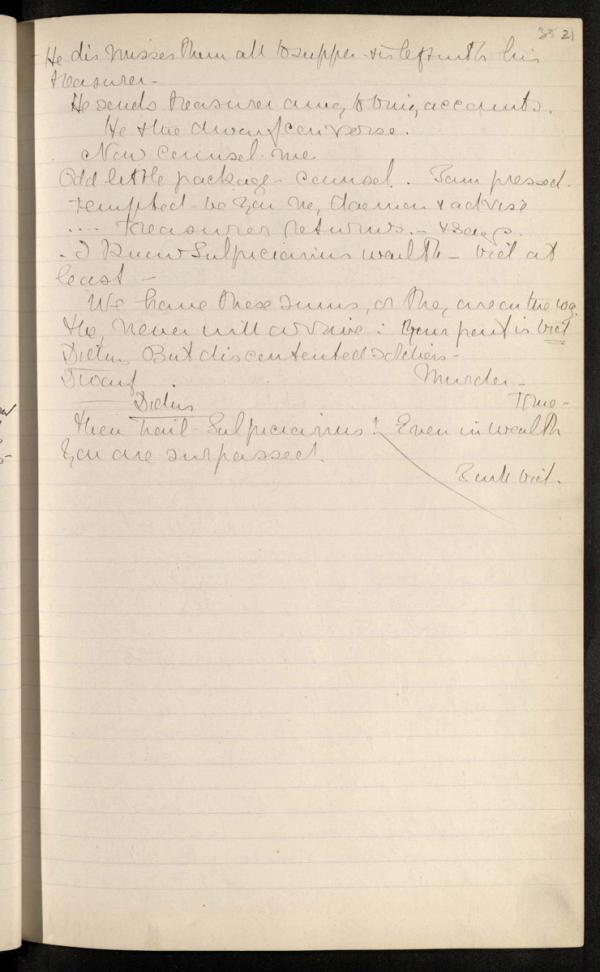 38 21
He dismisses them all to supper & is left with his
treasurer -
He sends treasurer away to bring accounts.
He & the dwarf converse.
Now counsel me
Odd little package - counsel. I am pressed.
tempted - be you my daemon & advise
.... treasurer returns - & says.
. I know Sulpicianus wealth -
least -
We have these sums, or they are on the way
they never will arrive : Your point is
Didius But discontented soldiers -
Dwarf Murder -
Didius True -
then hail Sulpicianus! Even in wealth
You are surpassed.